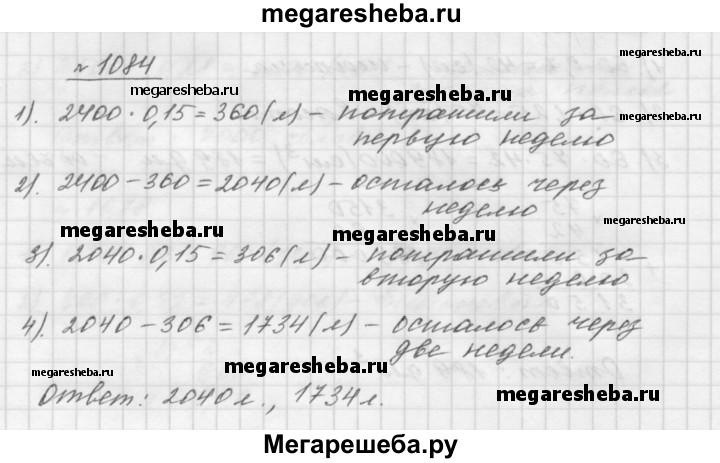 megaresheba.ru
№ 1084
megaresheba.ru
megaresheba.ru
megaresheba.ru
1). 2400 · 0,15 = 360 (л) - потратили за
megaresheba.ru
первую неделю
2). 2400 - 360 = 2040 (л) - осталось через
неделю
megaresheba.ru
megaresheba.ru
megaresheba.ru
3). 2040 · 0,15 = 306 (л) - потратили за
вторую неделю
4). 2040 - 306 = 1734 (л) - осталось через
две недели.
megaresheba.ru
megaresheba.ru
megaresheba.ru
Ответ: 2040 л., 1734 л.
megaresheba.ru
Мегарешеба.ру